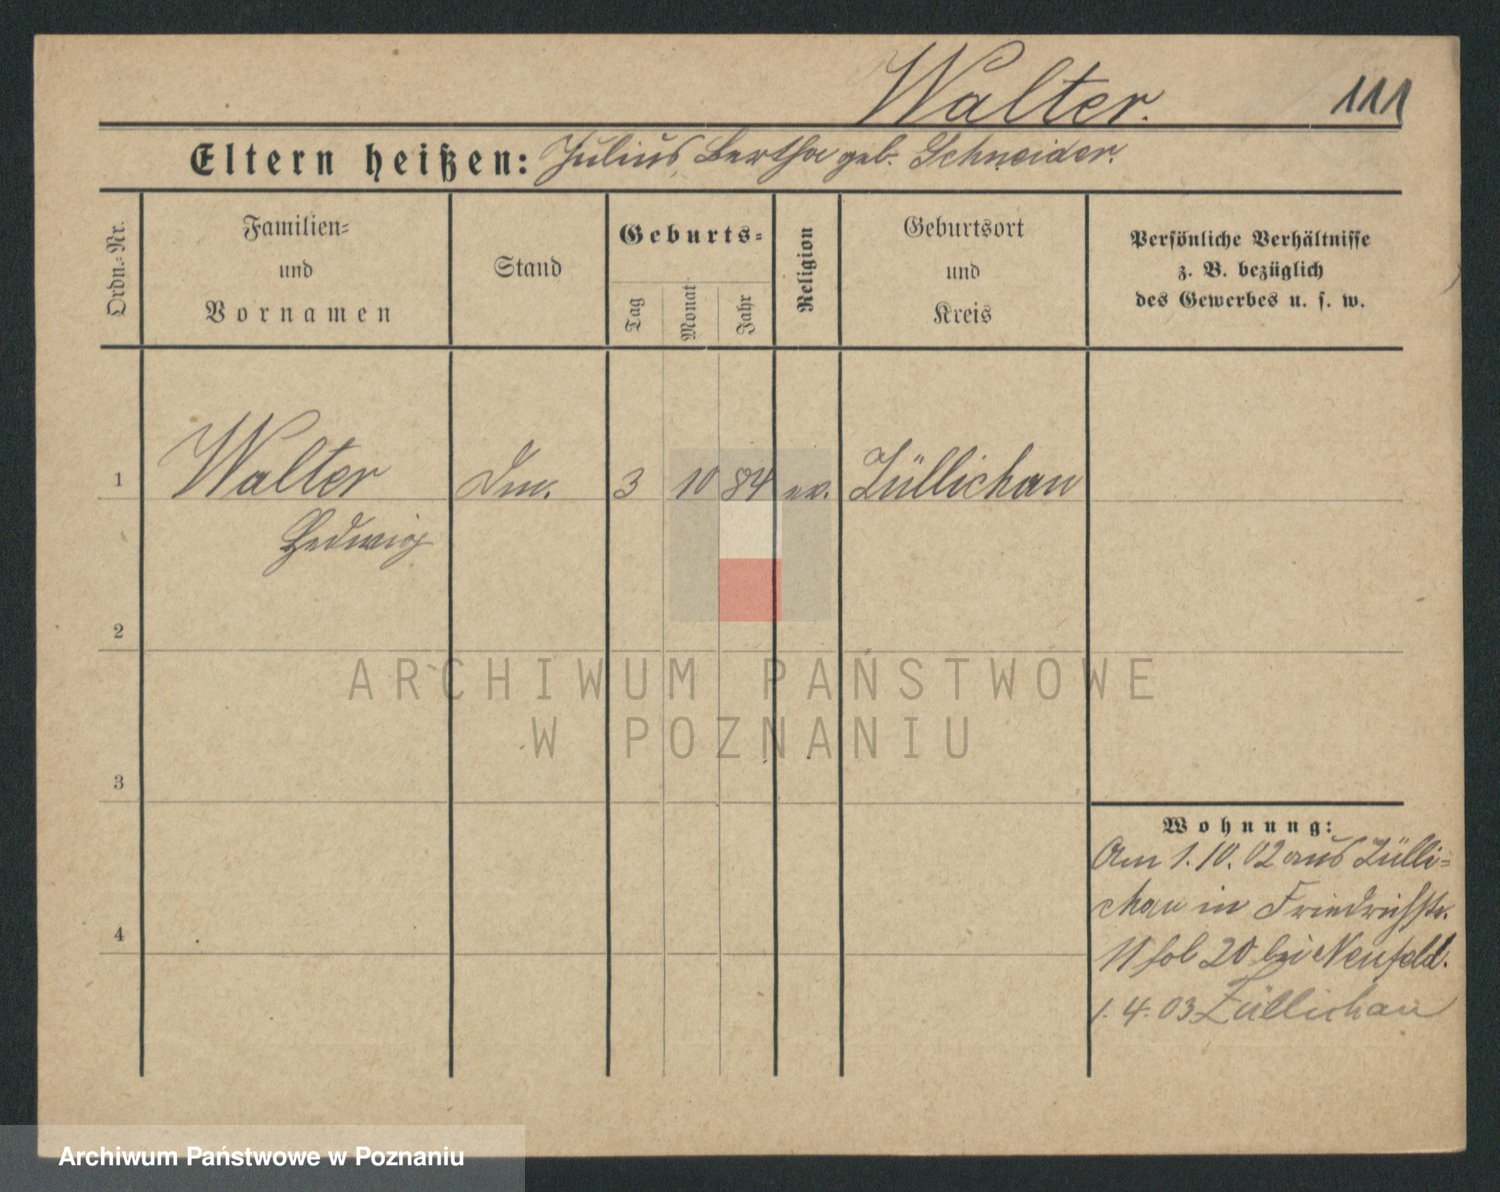 Walter. 111
Eltern heißen: Julius, Bertha geb. Schneider.
Ordn.-Nr.
Familien-
und
Vornamen
Stand
Geburts-
Tag
Monat
Jahr
Religion
Geburtsort
und
Kreis
Persönliche Verhältnisse
z. B. bezüglich
des Gewerbes u. s. w.
1 Walter 3 10 84 ev. Züllichau
Hedwig
2
ARCHIWUM PAŃSTWOWE
W POZNANIU
3
Wohnung:
Am 1.10.02 aus Zülli-
chau in Friedrichstr.
11 fol 20 bei Neufeld.
4
1.4.03 Züllichau
Archiwum Państwowe w Poznaniu